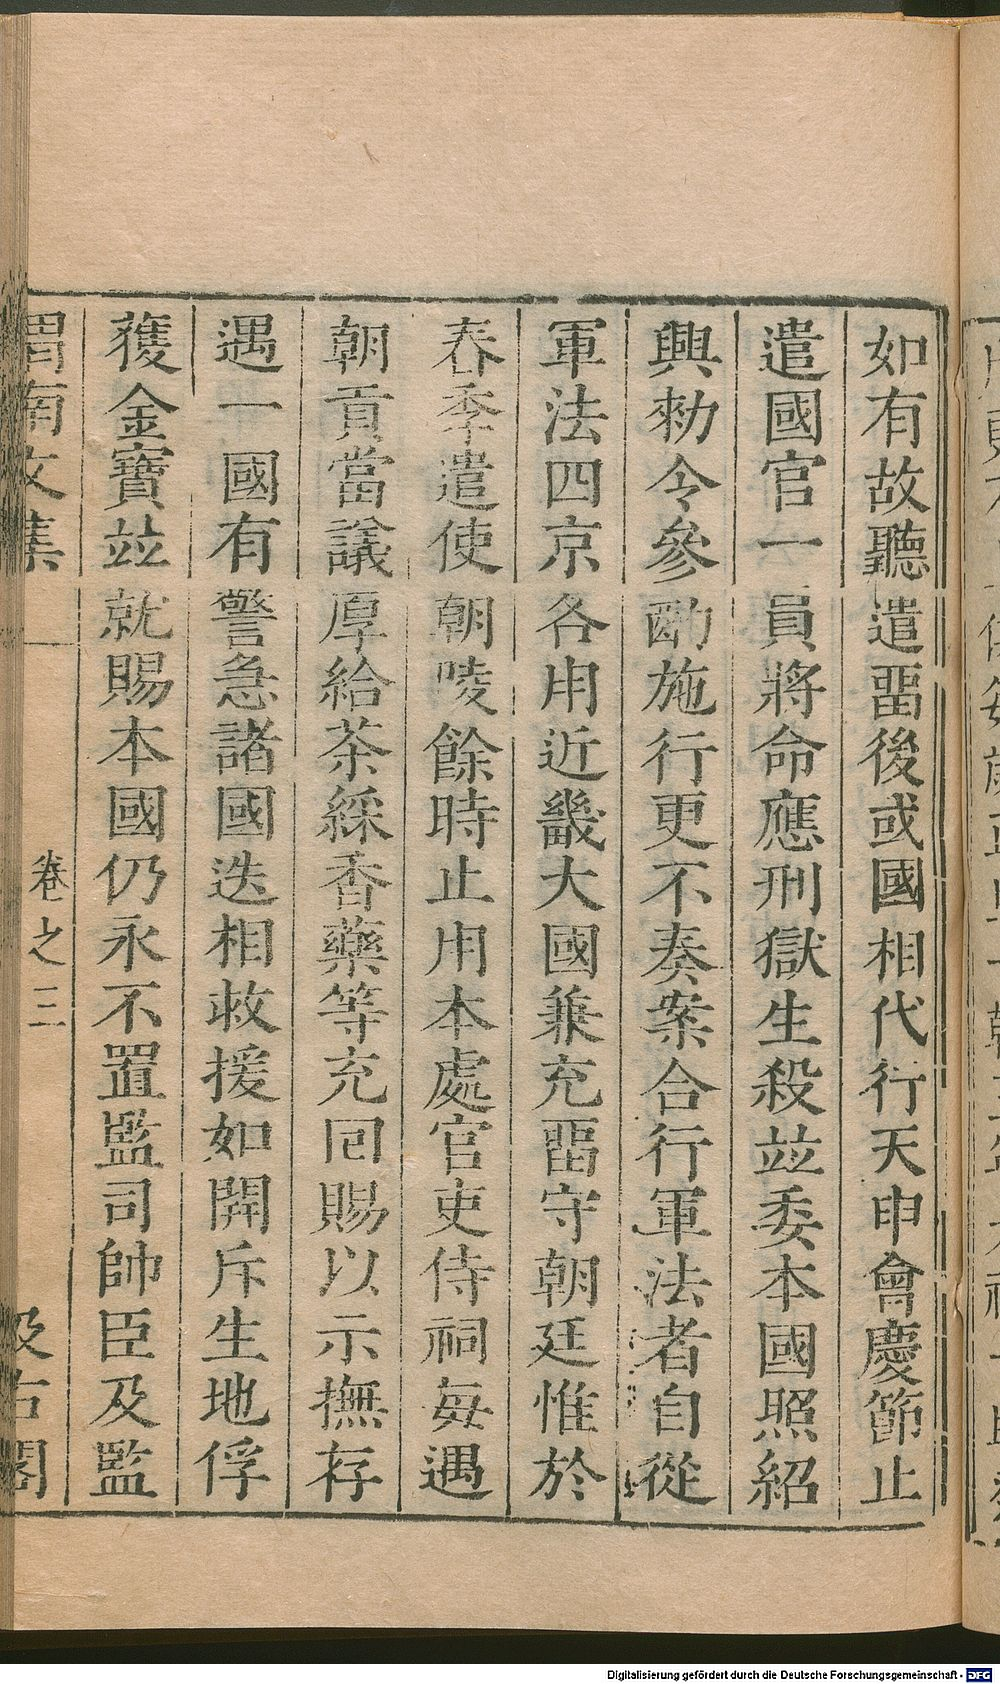 如有故聽遣畱後或國相代行天申會慶節止
遣國官一員將命應刑獄生殺竝委本國照紹
興勑令參酌施行更不奏案合行軍法者自從
軍法四京各用近畿大國兼充畱守朝廷惟於
春季遣使朝陵餘時止用本處官吏侍祠每遇
朝貢當議厚給茶綵香藥等充囘賜以示撫存
遇一國有警急諸國迭相救援如開斥生地俘
獲金寶竝就賜本國仍永不置監司帥臣及監
渭南文集 卷之三 汲古閣
Digitalisierung gefördert durch die Deutsche Forschungsgemeinschaft - DFG